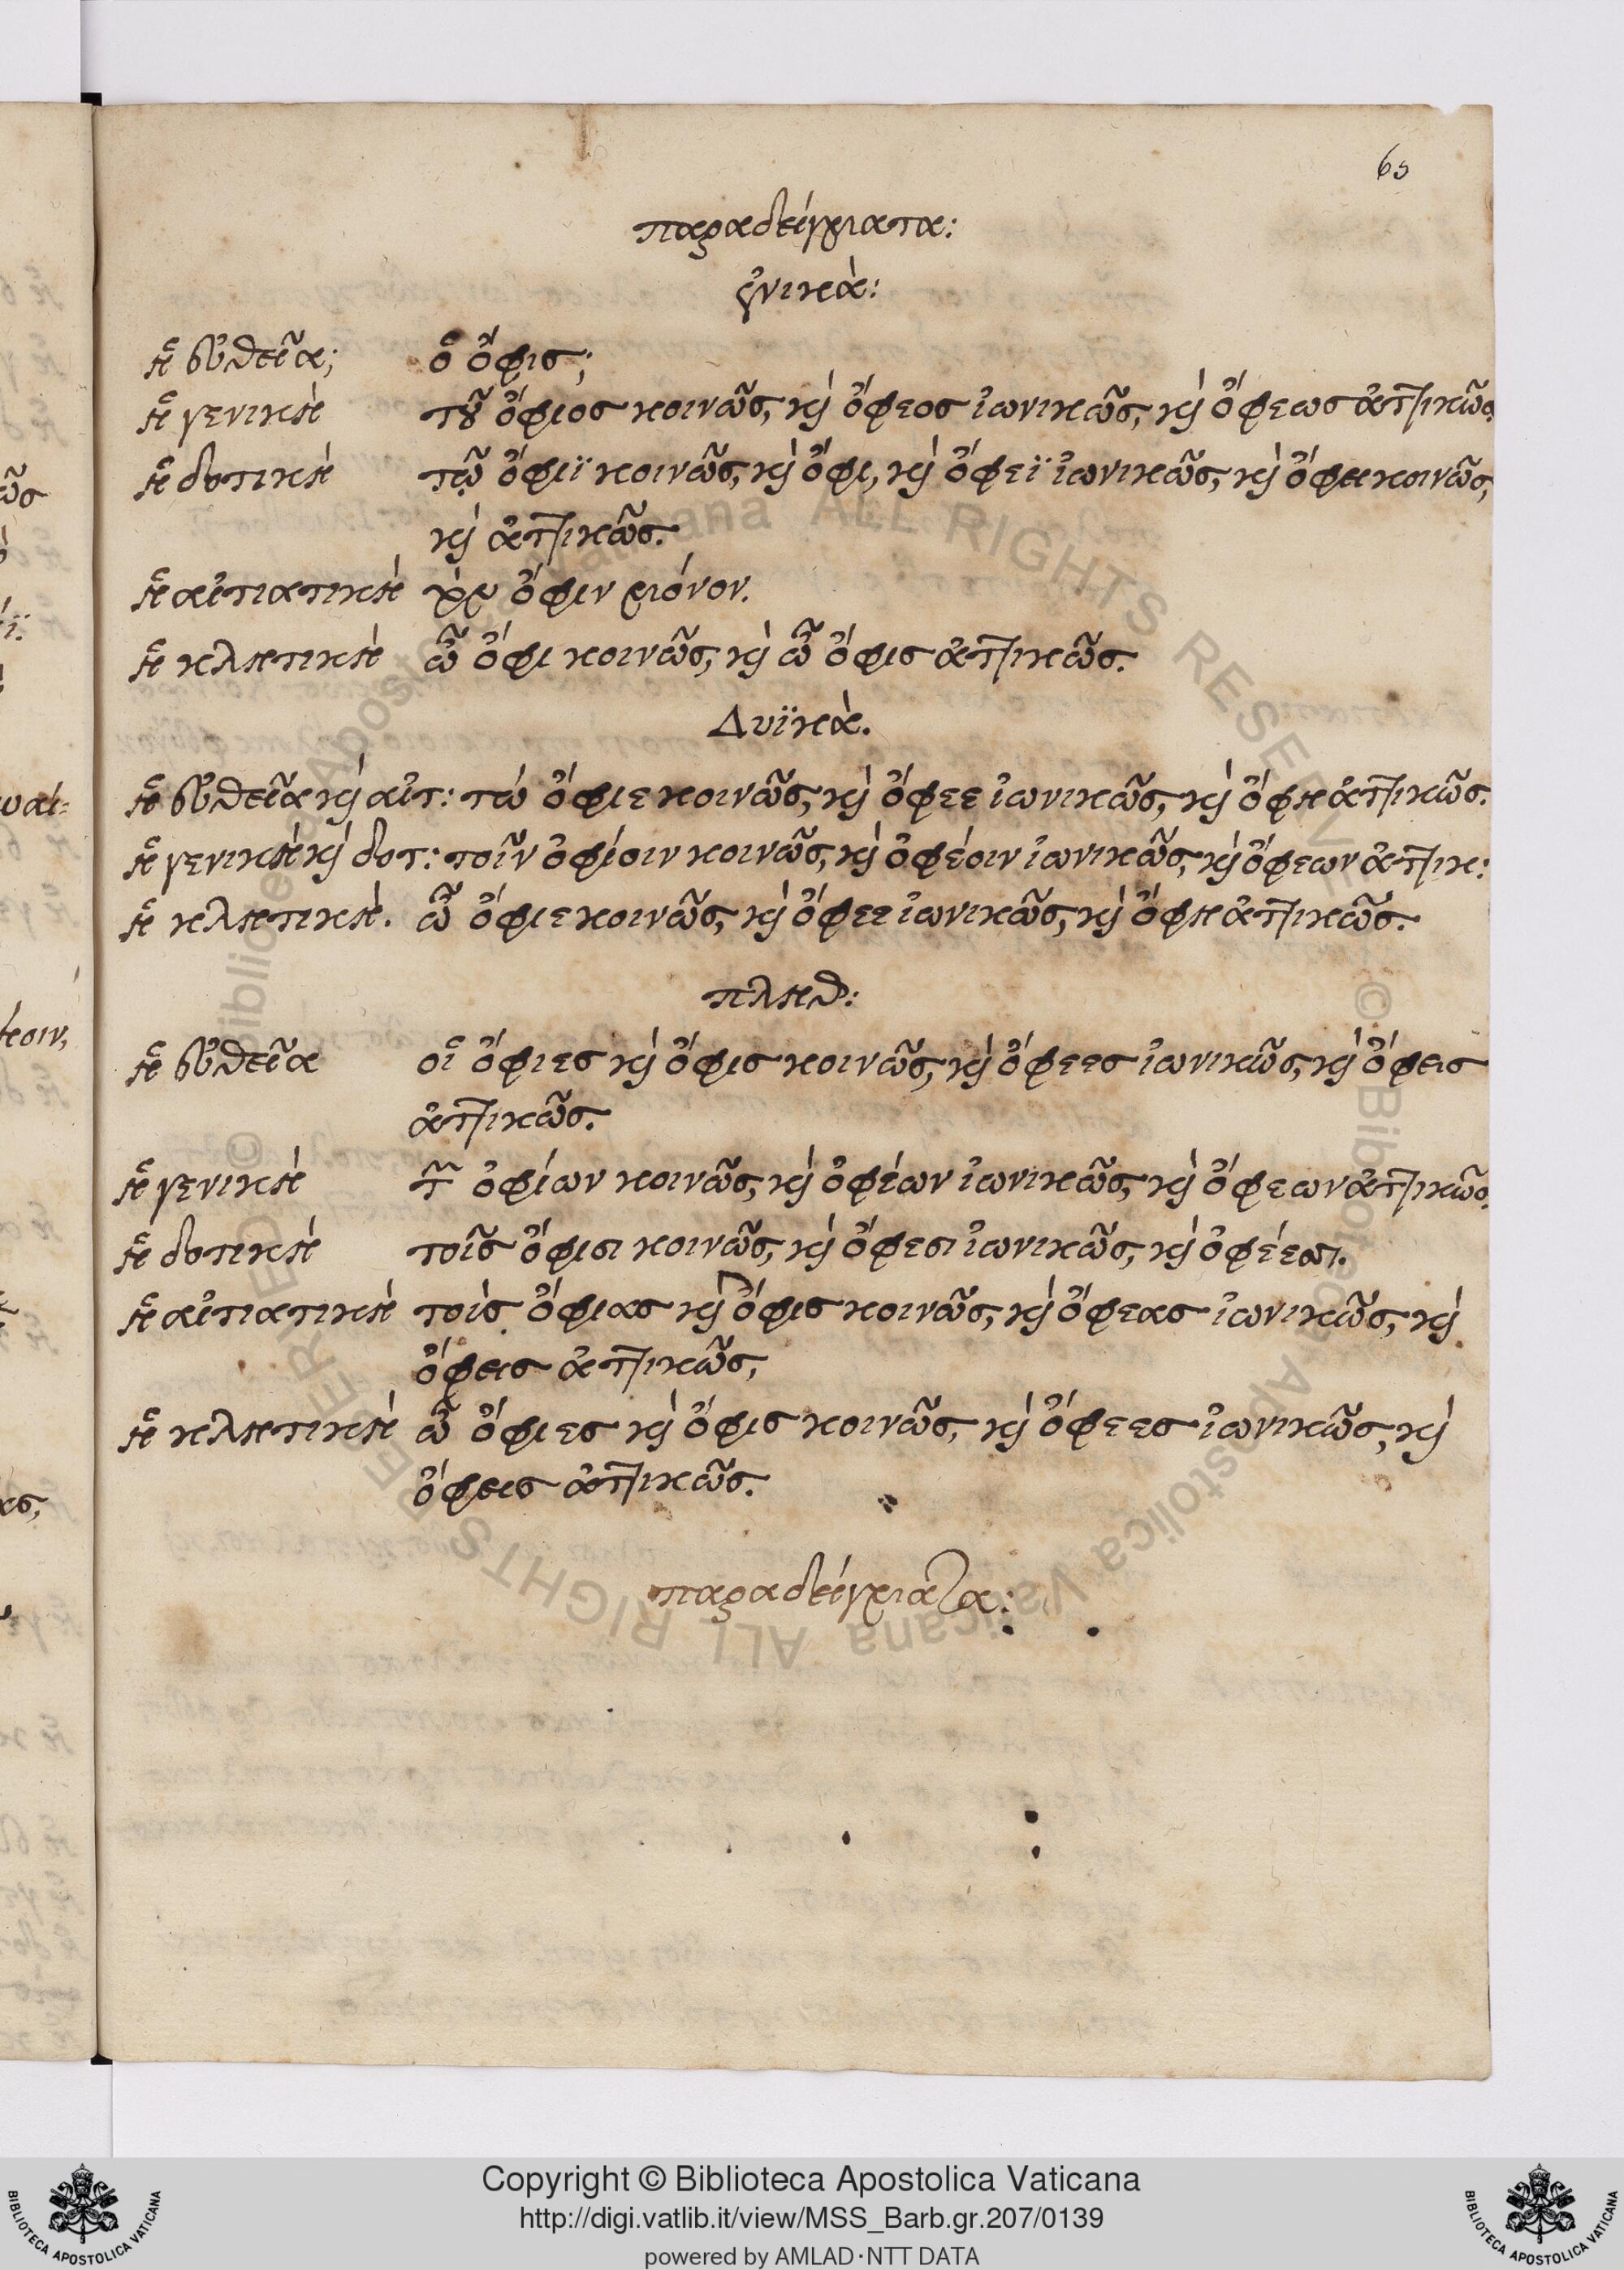 65
παραδείγματα:
ἑνικὰ:
ἡ εὐθεῖα; ὁ ὄφις;
ἡ γενικὴ τοῦ ὄφιος κοινῶς, καὶ ὄφεος ἰωνικῶς, καὶ ὄφεως ἀττικῶς.
ἡ δοτικὴ τῷ ὄφιϊ κοινῶς, καὶ ὄφι, καὶ ὄφεϊ ἰωνικῶς, καὶ ὄφει κοινῶς,
καὶ ἀττικῶς.
ἡ αἰτιατικὴ τὸν ὄφιν μόνον.
ἡ κλητικὴ ὦ ὄφι κοινῶς, καὶ ὦ ὄφις ἀττικῶς.
Δυϊκὰ.
ἡ εὐθεῖα καὶ αἰτ: τώ ὄφιε κοινῶς, καὶ ὄφεε ἰωνικῶς, καὶ ὄφη ἀττικῶς.
ἡ γενικὴ καὶ δοτ: τοῖν ὀφίοιν κοινῶς, καὶ ὀφέοιν ἰωνικῶς, καὶ ὄφεων ἀττικ:
ἡ κλητικὴ. ὦ ὄφιε κοινῶς, καὶ ὄφεε ἰωνικῶς, καὶ ὄφη ἀττικῶς.
πληθ:
ἡ εὐθεῖα οἱ ὄφιες καὶ ὄφις κοινῶς, καὶ ὄφεες ἰωνικῶς, καὶ ὄφεις
ἀττικῶς.
ἡ γενικὴ τῶν ὀφίων κοινῶς, καὶ ὀφέων ἰωνικῶς, καὶ ὄφεων ἀττικῶς.
ἡ δοτικὴ τοῖς ὄφισι κοινῶς, καὶ ὄφεσι ἰωνικῶς, καὶ ὀφέεσι.
ἡ αἰτιατικὴ τοὶς ὄφιας καὶ ὄφις κοινῶς, καὶ ὄφεας ἰωνικῶς, καὶ
ὄφεις ἀττικῶς,
ἡ κλητικὴ ὦ ὄφιες καὶ ὄφις κοινῶς, καὶ ὄφεες ἰωνικῶς, καὶ
ὄφεις ἀττικῶς.
παραδείγματα:
Copyright © Biblioteca Apostolica Vaticana
http://digi.vatlib.it/view/MSS_Barb.gr.207/0139
powered by AMLAD·NTT DATA
BIBLIOTECA APOSTOLICA VATICANA
BIBLIOTECA APOSTOLICA VATICANA
© Biblioteca Apostolica Vaticana ALL RIGHTS RESERVED
© Biblioteca Apostolica Vaticana ALL RIGHTS RESERVED